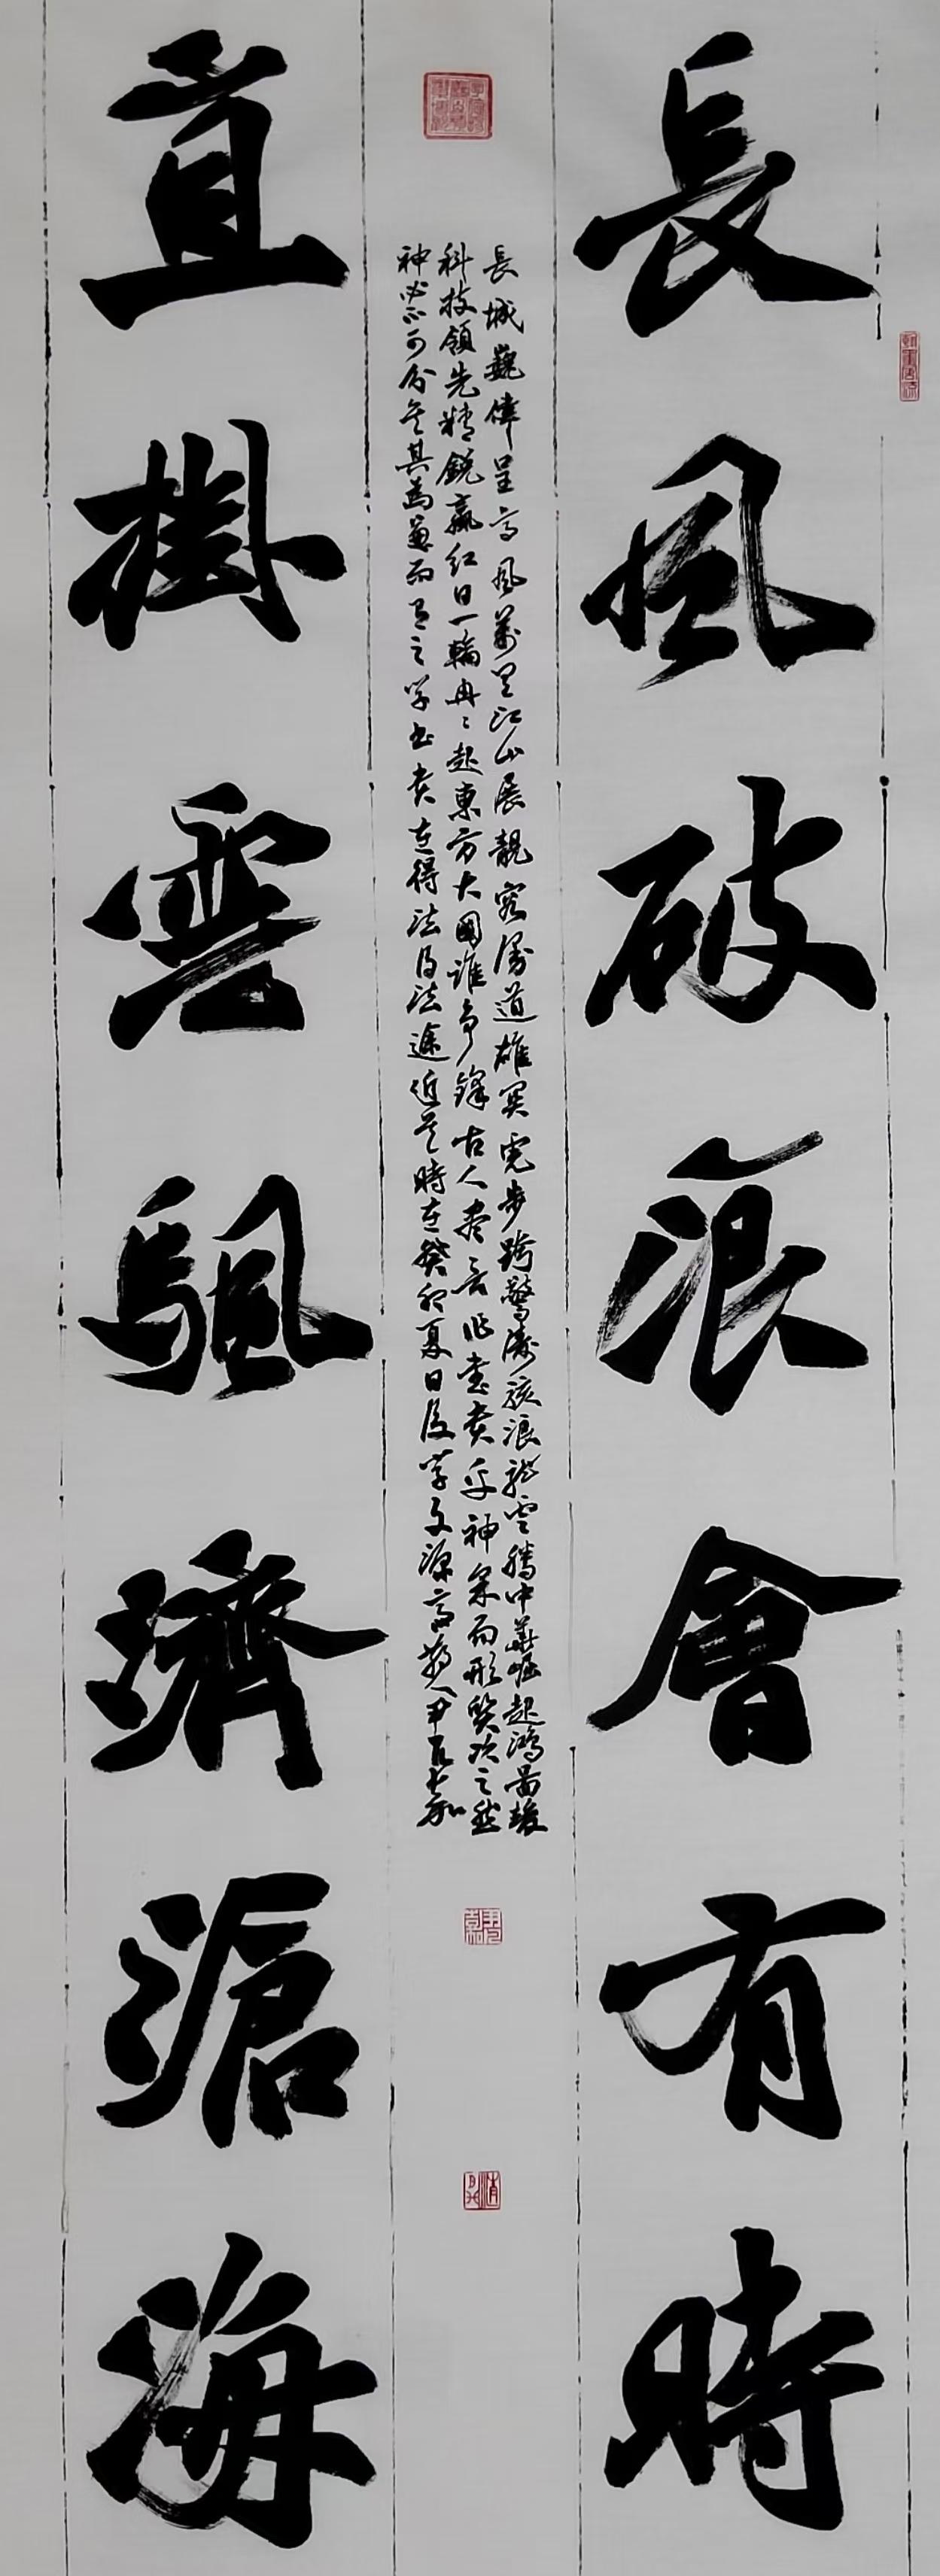 長風破浪會有時
長城巍偉呈高風萬里江山展靚容漫道雄關虎步跨驚濤駭浪龍雲騰中華崛起鴻圖
科技領先精銳贏紅日一輪冉冉赴東方大國誰爭鋒古人嘗言作書貴乎神采而形質次之然
神必不可分其為兼而有之學書貴在得法得法途近是時在癸卯夏日後學文源高藝人尹
直掛雲颿濟滄海